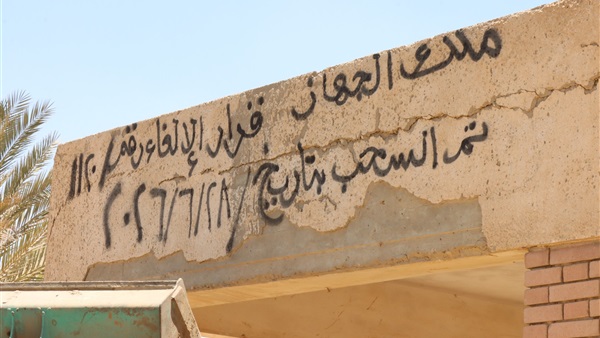 ملك الجهاز قرار الإلغاء رقم / ١١٢٠
تم السحب بتاريخ / ٢٠٢٦/٦/٢٨